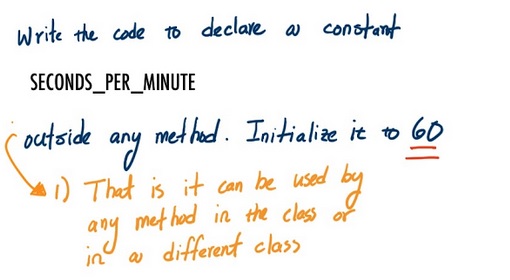 Write the code to declare a constant
SECONDS_PER_MINUTE
outside any method. Initialize it to 60
1) That is it can be used by
any method in the class or
in a different class